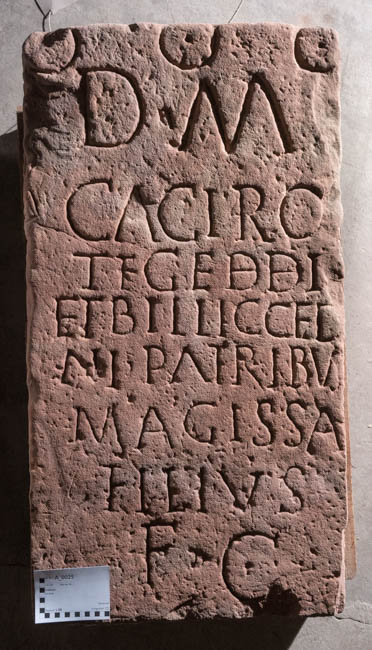 D M
CACIRO
TEGEĐĐI
ETBILLICCEL
NI PATRIBV
MAGISSA
FILIVS
F C
A_0025